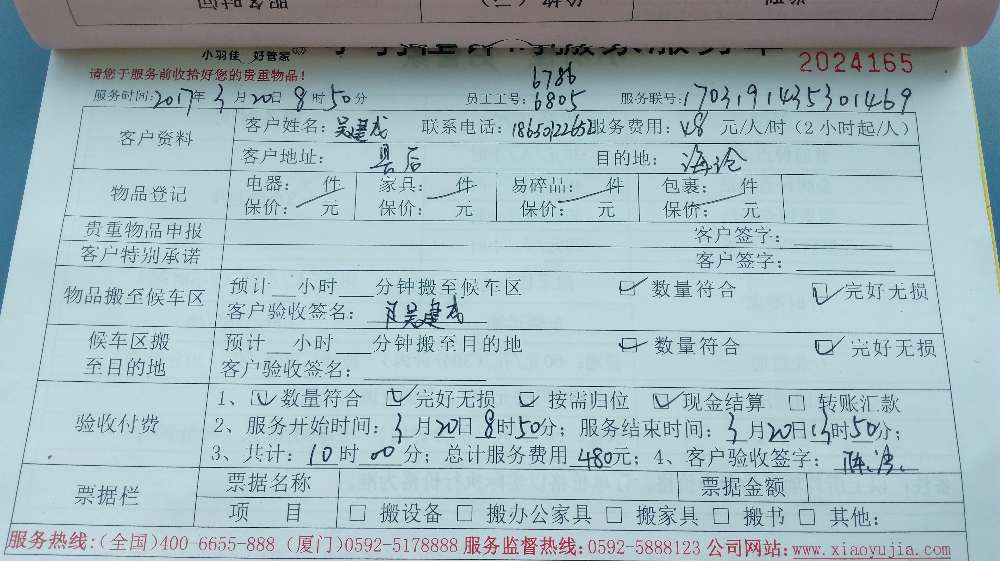 小羽佳 好管家
2024165
请您于服务前收拾好您的贵重物品!
6786
服务时间: 2017年3月20日8时50分 员工工号: 6805 服务联号: 1703191435301469
客户资料 客户姓名: 吴建成 联系电话: 服务费用: 48 元/人/时(2小时起/人)
客户地址: 县后 目的地: 海沧
物品登记 电器: 件 家具: 件 易碎品: 件 包裹: 件
保价: 元 保价: 元 保价: 元 保价: 元
贵重物品申报 客户签字:
客户特别承诺 客户签字:
物品搬至候车区 预计__小时___分钟搬至候车区 ☑ 数量符合 ☑ 完好无损
客户验收签名: 吴建成
候车区搬至目的地 预计__小时___分钟搬至目的地 ☑ 数量符合 ☑ 完好无损
客户验收签名:
验收付费 1、☑ 数量符合 ☑ 完好无损 ☑ 按需归位 ☑ 现金结算 □ 转账汇款
2、服务开始时间: 3月20日8时50分; 服务结束时间: 3月20日 时50分;
3、共计: 10时00分; 总计服务费用 480元; 4、客户验收签字:
票据栏 票据名称 票据金额
项 目 □ 搬设备 □ 搬办公家具 □ 搬家具 □ 搬书 □ 其他:
服务热线:(全国)400-6655-888 (厦门)0592-5178888 服务监督热线:0592-5888123 公司网站:www.xiaoyujia.com